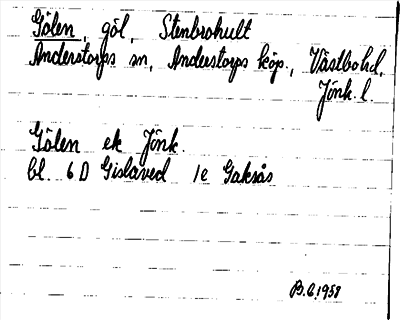 Gölen, göl, Stenbrohult
Anderstorps sn, Anderstorps köp., Västbo hd,
Jönk. l.
Gölen ek Jönk.
bl. 6 D Gislaved 1e Gaksås
B.G. 1958